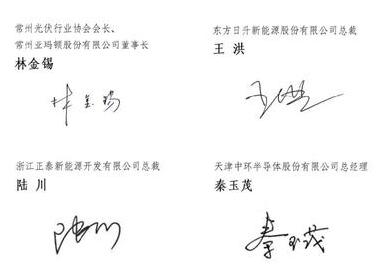 常州光伏行业协会会长、
常州亚玛顿股份有限公司董事长
林金锡
林金锡
东方日升新能源股份有限公司总裁
王 洪
王洪
浙江正泰新能源开发有限公司总裁
陆 川
陆川
天津中环半导体股份有限公司总经理
秦玉茂
秦玉茂